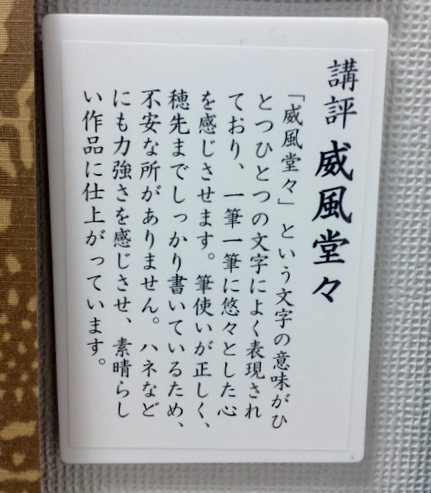 講評 威風堂々
「威風堂々」という文字の意味がひ
とつひとつの文字によく表現され
ており、一筆一筆に悠々とした心
を感じさせます。筆使いが正しく、
穂先までしっかり書いているため、
不安な所がありません。ハネなど
にも力強さを感じさせ、素晴らし
い作品に仕上がっています。